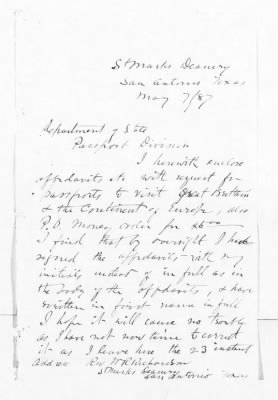 St Marks Deanery
San Antonio Texas
May 7/87
Department of State
Passport Division
I herewith enclose
affidavits etc with request for
passports to visit Great Britain
& the Continent of Europe, also
P.O. Money order for
I find that by oversight I had
signed the affidavits with my
initials instead of in full as in
the body of the affidavits, & have
written in first name in full
I hope it will cause no trouble
as I have not now time to correct
it as I leave here the 23 instant
Address Rev W R Richardson
St Marks Deanery
San Antonio Texas